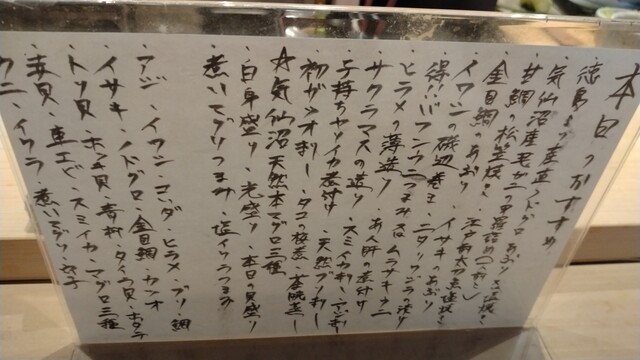 本日のおすすめ
徳島より産直ノドグロあぶり
・気仙沼産毛ガニの甲羅詰め
・甘鯛の松笠焼き
・金目鯛のあぶり
イワシの磯辺巻き・イサキのあぶり
得!!バフンウニつまみ又はムラサキウニ
ヒラメの薄造り
サクラマスの造り あん肝の煮付け
子持ちヤリイカ煮付け・スミイカ刺し・アジ刺し
初ガツオ刺し・タコの桜煮・天然ブリ刺し
☆気仙沼天然本マグロ三種
・白身盛り・光盛り・本日の貝盛り
・煮ハマグリつまみ・塩イクラつまみ
・アジ・イワシ・コハダ・ヒラメ・ブリ・鯛
・イサキ・ノドグロ・金目鯛・カツオ
・トリ貝・ホッキ貝・青柳・タイラ貝・ホタテ
・赤貝・車エビ・スミイカ・マグロ三種
ウニ・イクラ・煮ハマグリ・穴子